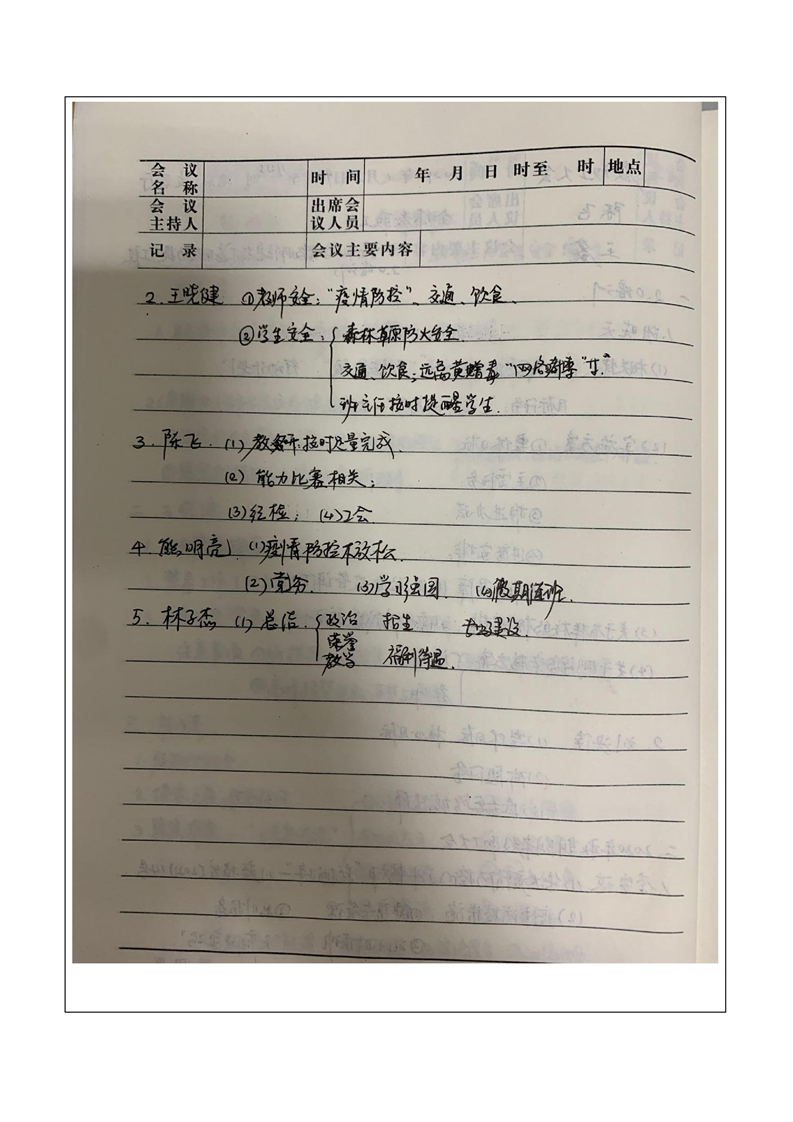 会议名称 时间 年 月 日 时至 时 地点
会议主持人 出席会议人员
记录 会议主要内容
2. 王晓健 ①老师安全:“疫情防控”、交通、饮食、
②学生安全:森林草原防火安全
交通、饮食;远离黄赌毒“网络赌博”
班主任按时提醒学生.
3. 陈飞. (1)教务:按时足量完成.
(2) 能力比赛相关;
(3)经检; (4)工会
4. 熊明亮 (1)疫情防控不放松.
(2)党务. (3)学习强国. (4)假期值班.
5. 林子杰 (1)总结. 政治 招生 建设.
荣誉
教学 福利待遇.